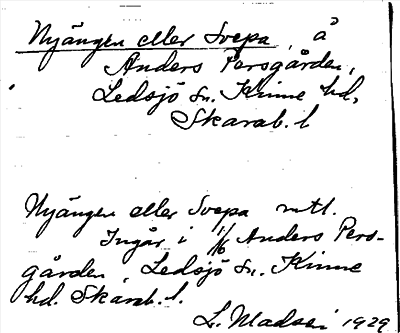 Nyängen eller Svepa, å
Anders Persgården,
Ledsjö sn. Kinne hd,
Skarab. l
Nyängen eller Svepa mtl.
Ingår i 1/6 Anders Pers-
gården, Ledsjö sn. Kinne
hd. Skarab. l.
L. 1929